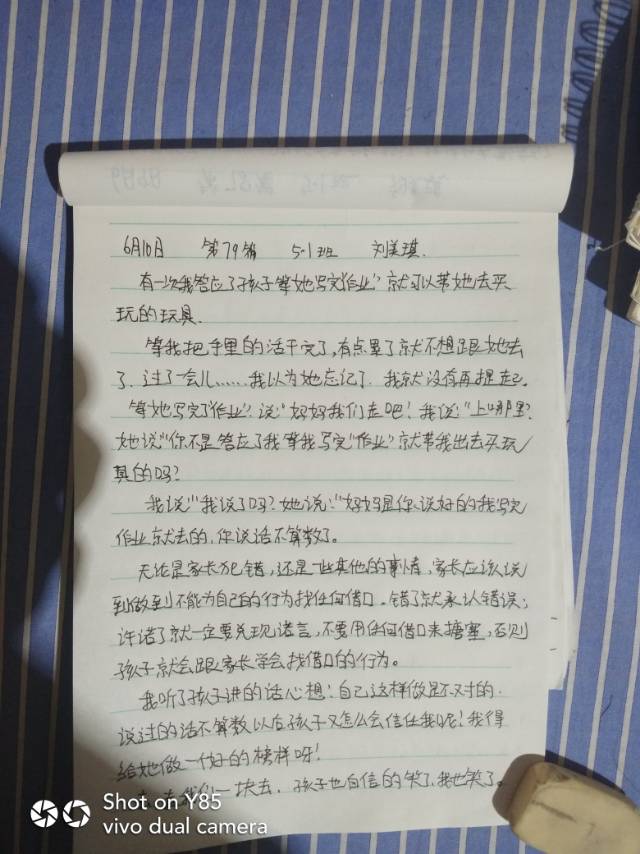 6月10日 第79篇 5·1班 刘美琪.
有一次我答应了孩子等她写完“作业”就可以带她去买
玩的玩具.
等我把手里的活干完了,有点累了就不想跟她去
了.过了一会儿......我以为她忘记了.我就没有再提起.
等她写完了“作业”.说:“妈妈我们走吧!我说:“上哪里?
她说“你不是答应了我等我写完“作业”就带我出去买玩
具的吗?
我说“我说了吗?她说:“妈妈是你说好的我写完
作业就去的,你说话不算数了。
无论是家长犯错,还是一些其他的事情,家长应该说
到做到不能为自己的行为找任何借口.错了就承认错误;
许诺了就一定要兑现诺言,不要用任何借口来搪塞,否则
孩子就会跟家长学会找借口的行为。
我听了孩子讲的话心想:自己这样做是不对的.
说过的话不算数以后孩子又怎么会信任我呢!我得
给她做一个好的榜样呀!
我们一块去.孩子也自信的笑了,我也笑了。
Shot on Y85
vivo dual camera